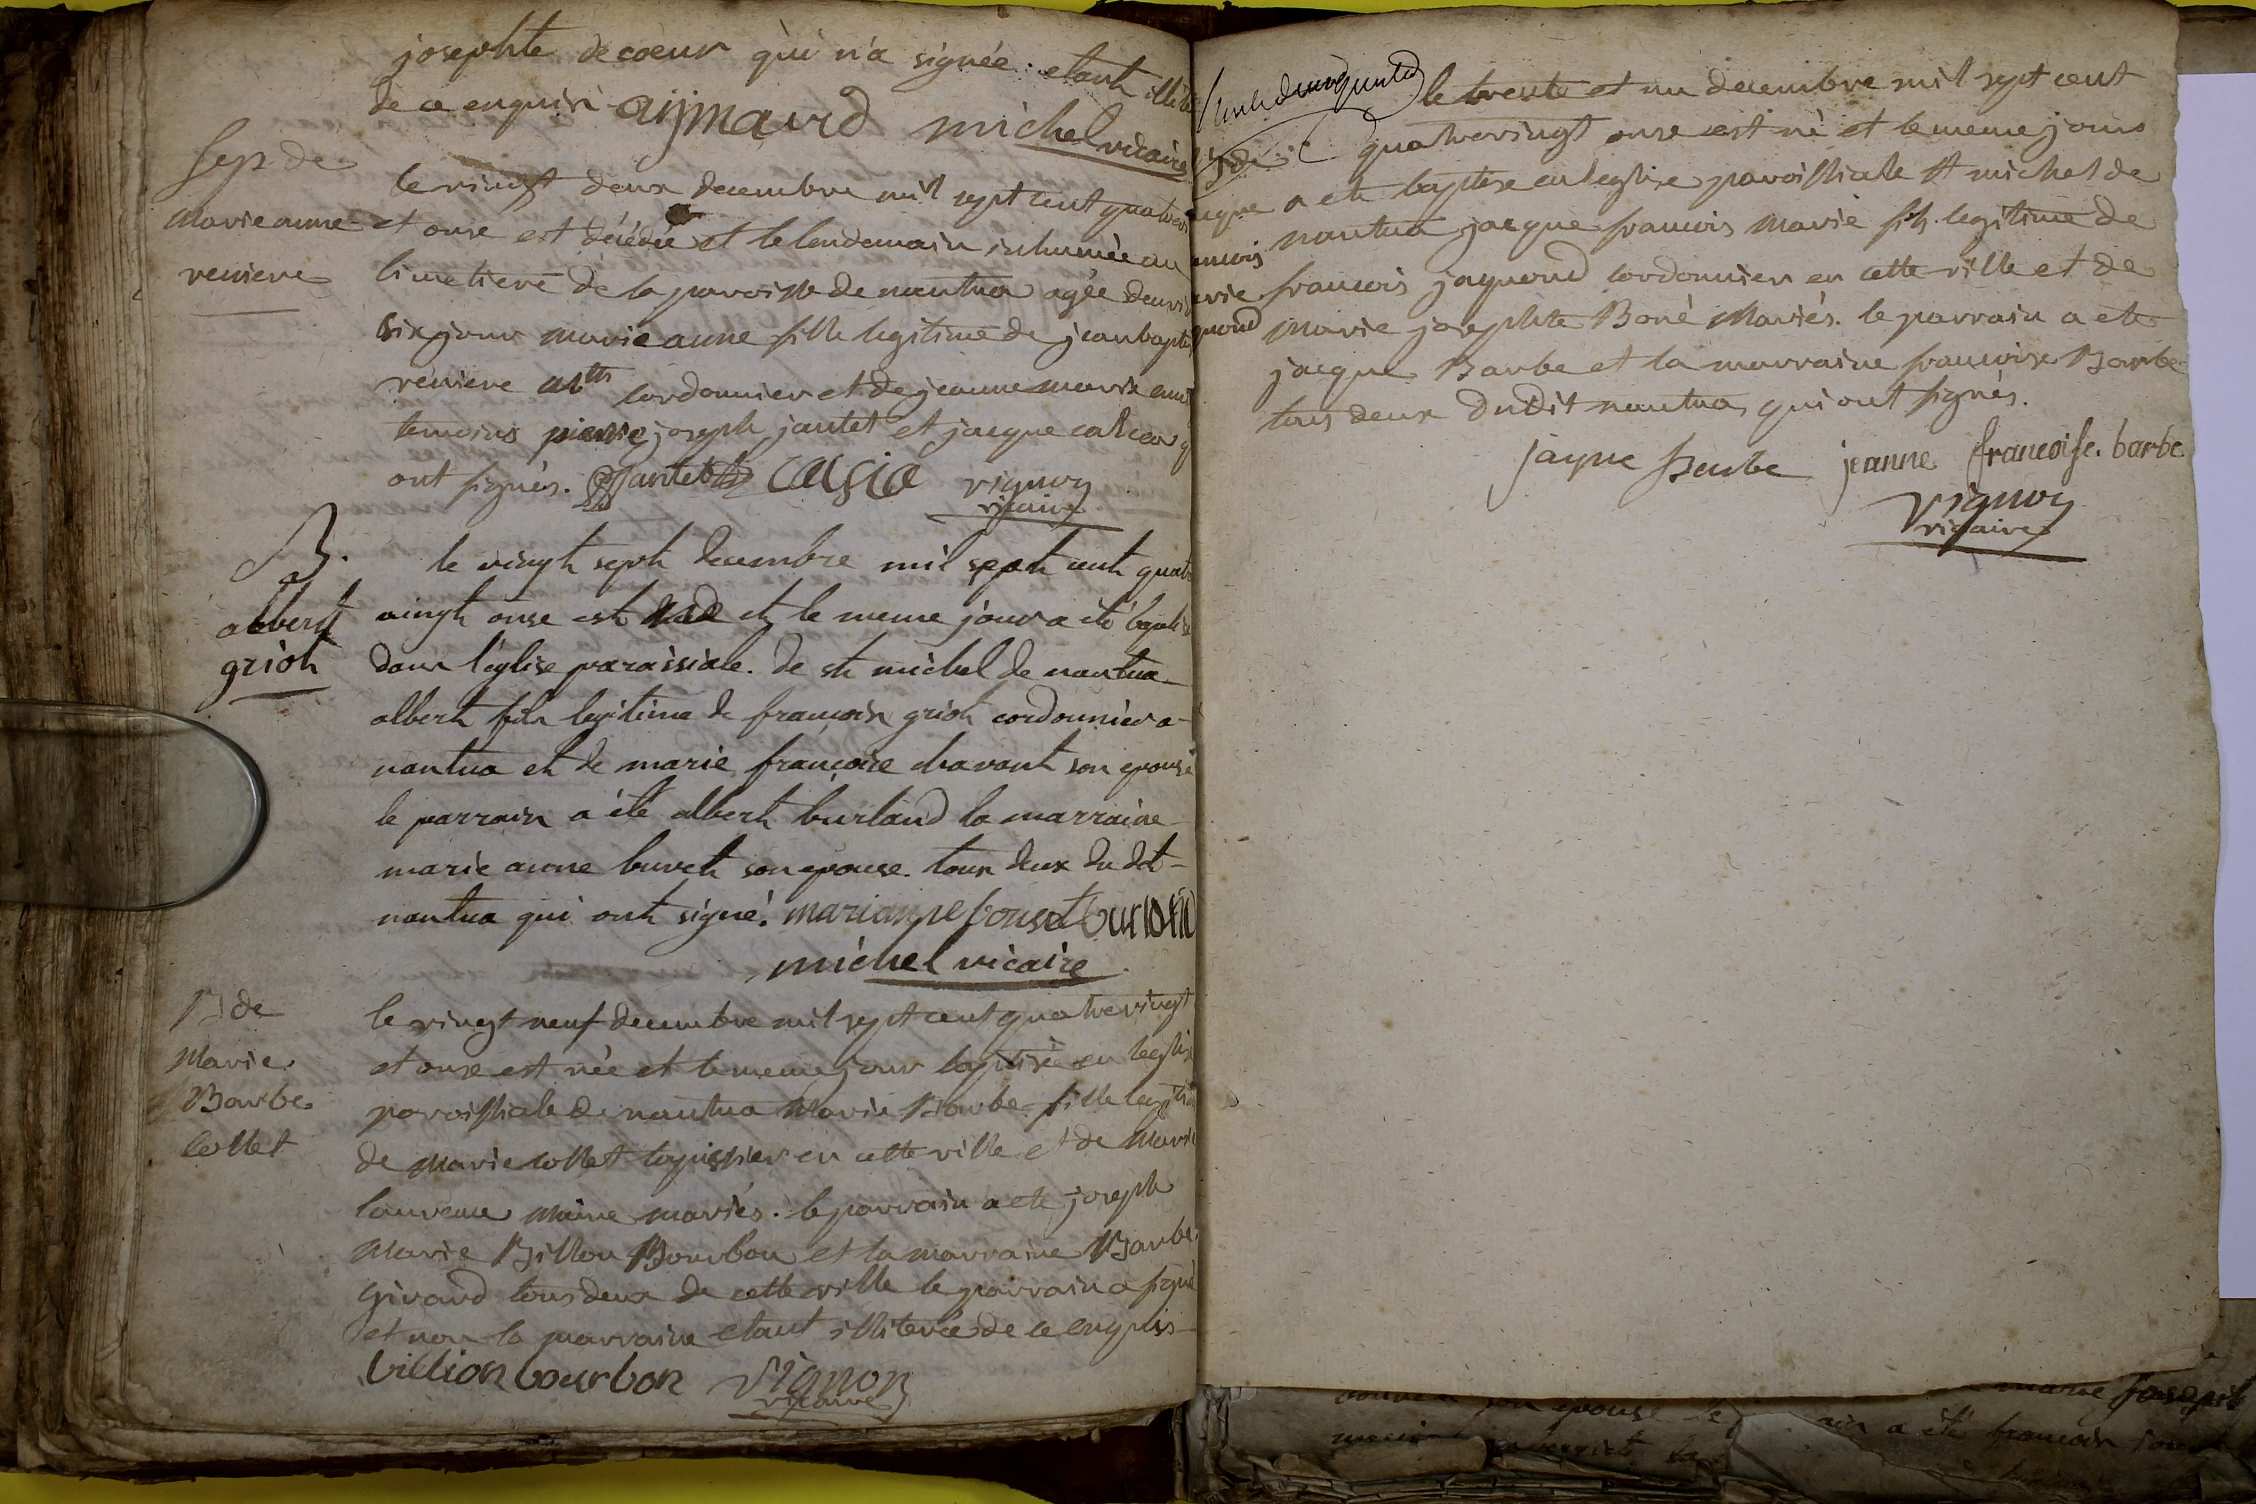 josephte de coeur qui n'a signée etant illite
de ce enquise aymard michel vicaire
sep. de
marie anne
reviere
le vingt deux decembre mil sept cent quatrevi
et onse est décédée et le lendemain inhumée au
cimetiere de la paroisse de nantua agée denvi
six jours marie anne fille legitime de jean baptis
reviere cordonnier et de jeanne marie
temoins pierre joseph jantet et jacque
ont signés. Jantet vignon
vicaire
B.
albert
grioh
le vingt sept decembre mil sept cent quatre
vingt onse est né et le meme jour a été baptise
dans l'église paroissiale. de st michel de nantua
albert fils legitime de francois griot cordonnier a
nantua et de marie françoise chavant son epouse
le parrain a été albert burland la marraine
marie anne buvet son epouse. tous deux du dit
nantua qui ont signé. marianne burland
michel vicaire
B de
Marie
Barbe
Collet
le vingt neuf decembre mil sept cent quatrevingt
et onse est née et le meme jour baptisée en leglise
paroissiale de nantua Marie Barbe fille legitim
de Marie Collet en cette ville et de Marie
maire mariés. le parrain a ete joseph
Marie Billion Bourbon et la marraine Barbe
girard tous deux de cette ville le parrain a signé
et non la marraine etant illiterée de ce enquis
billion bourbon vignon
vicaire
B de
jacque
francois
marie
jaquond
le trente et un decembre mil sept cent
quatrevingt onse est né et le meme jour
a ete baptise en leglise paroissiale St michel de
nantua jacque francois Marie fils legitime de
francois jaquond cordonnier en cette ville et de
Marie josephte Boné Mariés. le parrain a ete
jacque Barbe et la marraine francoise Barbe
tous deux dudit nantua qui ont signés.
jaque Barbe jeanne francoise. barbe
vignon
vicaire